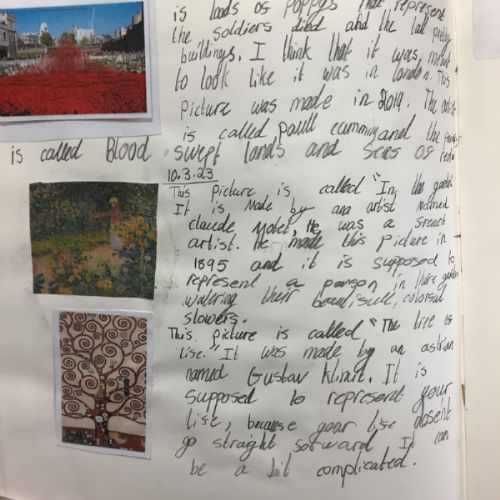 is loads of Poppys that represent
the soldiers died and the tall
buildings. I think that it was meant
to look like it was in london. This
picture was made in 2014. The artist
is called paull cumming and the
is called Blood swept lands and Seas of red
10.3.23
This Picture is called "In the garden
It is Made by an artist named
claude Monet, He was a french
artist. He made this Picture in
1895 and it is supposed to
represent a person in their garden
watering their beautifull, colorful
flowers.
This picture is called "The tree of
life." It was made by an
named Gustav Klimt. It is
supposed to represent your
life, because your life dosent
go straight forward It can
be a bit complicated.